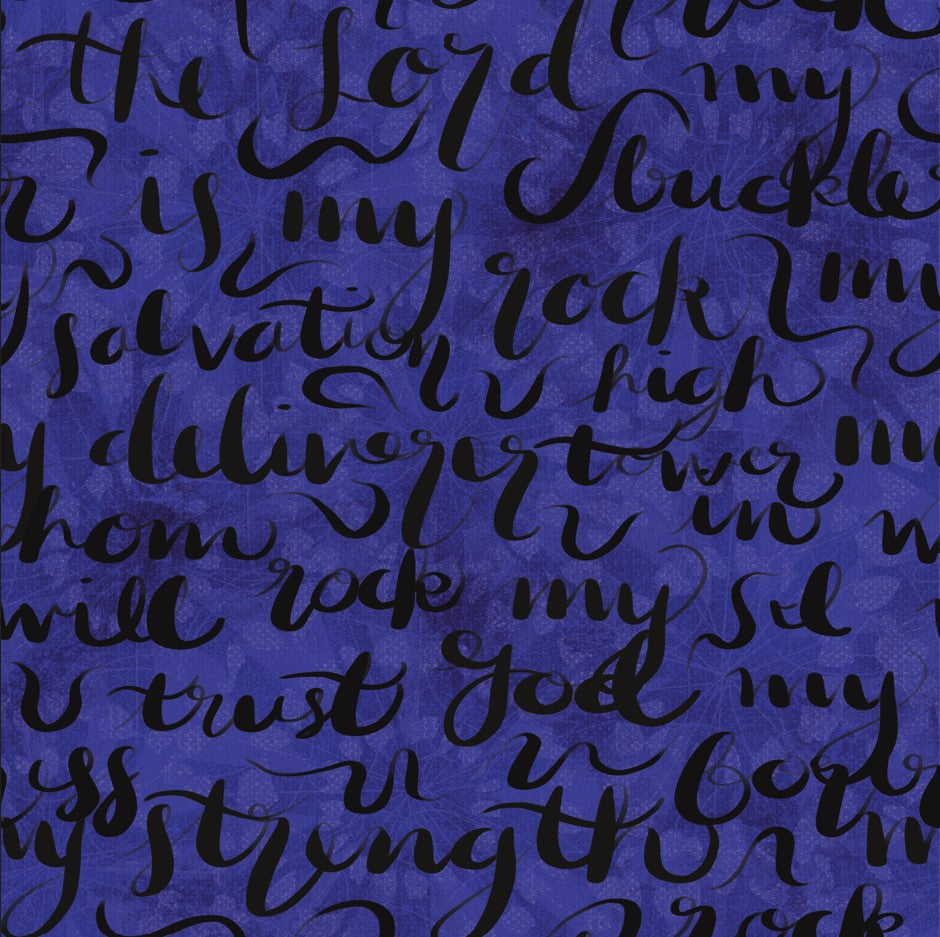 the Lord my
is my buckler
rock my
salvation
high
my deliverer tower my
whom in
will rock my
trust God my
strength
rock